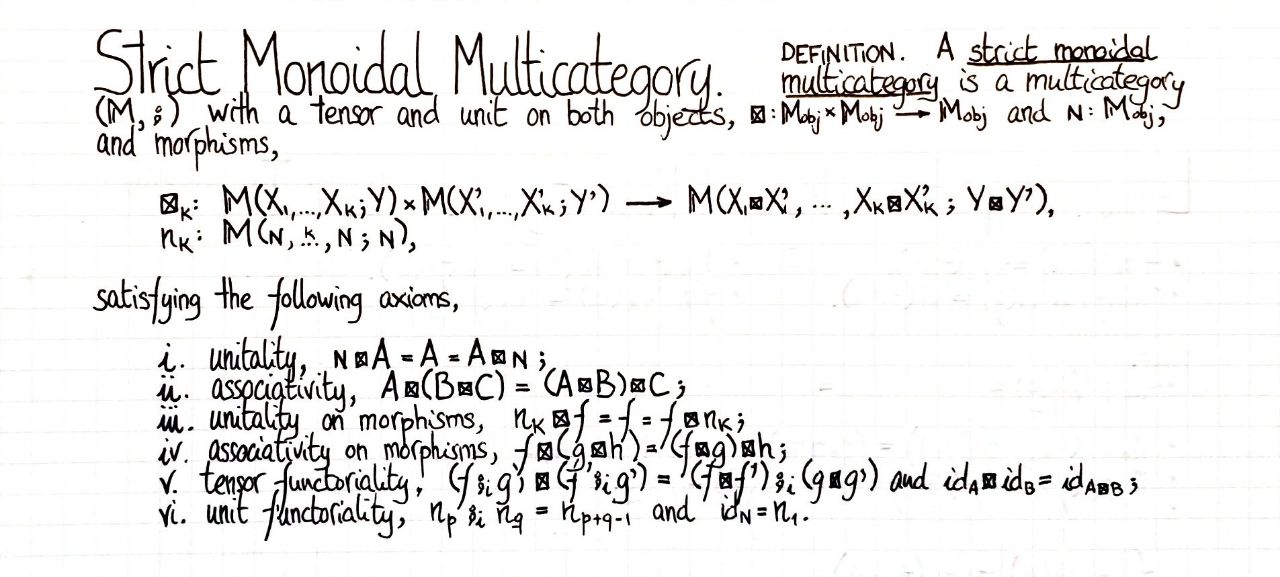 Strict Monoidal Multicategory. DEFINITION. A strict monoidal
multicategory is a multicategory
(M, ⨟) with a tensor and unit on both objects, ⊠: Mobj × Mobj → Mobj and N: Mobj,
and morphisms,
⊠K: M(X1,...,XK; Y) × M(X'1,...,X'K; Y') → M(X1⊠X'1, ... , XK⊠X'K ; Y⊠Y'),
nK: M(N, .K., N; N),
satisfying the following axioms,
i. unitality, N⊠A = A = A⊠N;
ii. associativity, A⊠(B⊠C) = (A⊠B)⊠C;
iii. unitality on morphisms, nK⊠f = f = f⊠nK;
iv. associativity on morphisms, f⊠(g⊠h) = (f⊠g)⊠h;
v. tensor functoriality, (f⨟i g) ⊠ (f'⨟i g') = (f⊠f')⨟i (g⊠g') and idA⊠idB = idA⊠B;
vi. unit functoriality, np⨟i nq = np+q-1 and idN = n1.